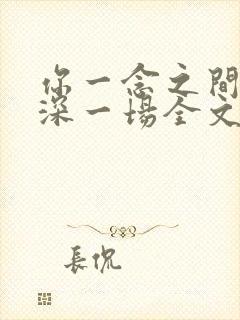 你一念之間
深一場全文
長侃